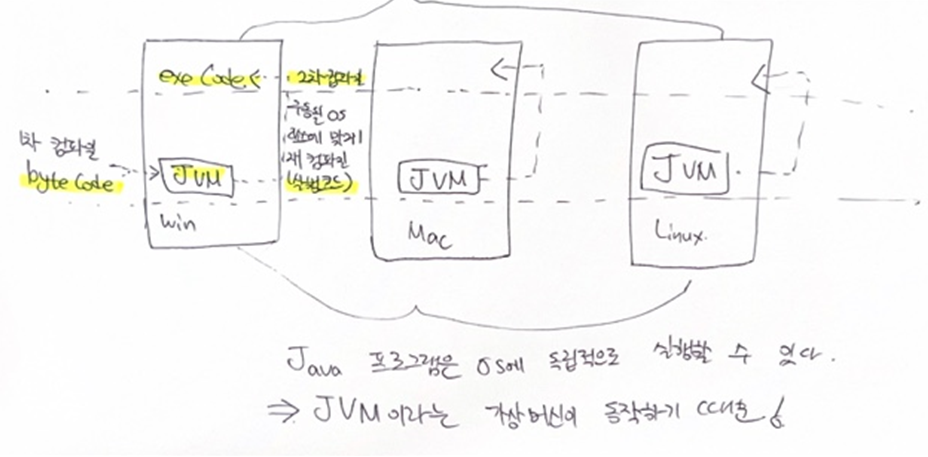 exe Code
2차 컴파일
구동될 OS
맞게
재 컴파일
(실행코드)
1차 컴파일
byte Code
JVM
JVM
JVM
win
Mac
Linux.
Java 프로그램은 OS에 독립적으로 실행할 수 있다.
⇒ JVM이라는 가상머신이 동작하기 때문!